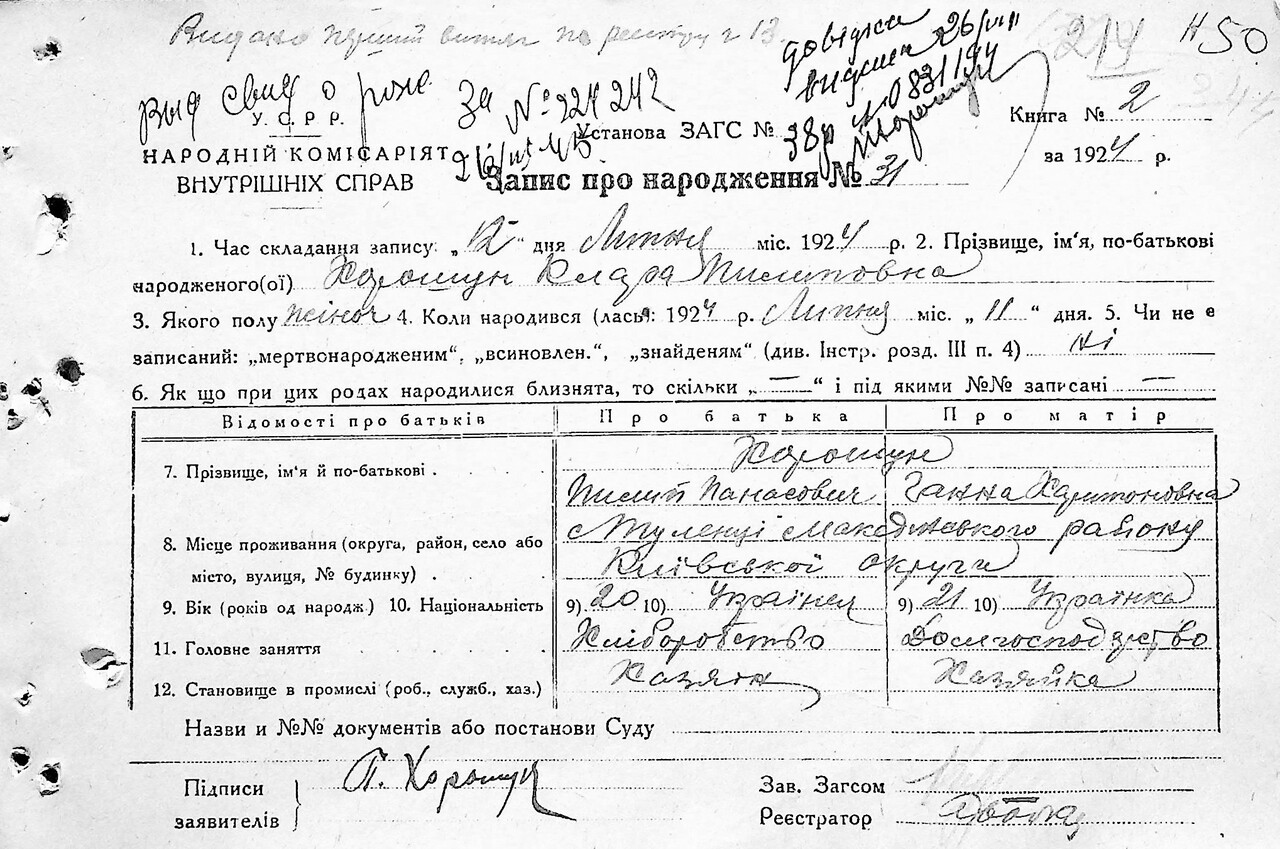 Видано перший витяг по реєстру г 13
довідка
видана 26/VIII
№ 083144
214
50
Выд свид о рожд.
За № 224242
У.С.Р.Р.
Установа ЗАГС №
Книга № 2
НАРОДНІЙ КОМІСАРІЯТ
за 1924 р.
ВНУТРІШНІХ СПРАВ
Запис про народження № 31
1. Час складання запису: „12" дня Липня міс. 1924 р. 2. Прізвище, ім'я, по-батькові
народженого(ої) Хорошун Клара Пилиповна
3. Якого полу жіноч 4. Коли народився (лась): 1924 р. Липня міс. „11" дня. 5. Чи не є
записаний: „мертвонародженим", „всиновлен.", „знайденям" (див. Інстр. розд. III п. 4) Ні
6. Як що при цих родах народилися близнята, то скільки „—" і під якими №№ записані —
Відомості про батьків Про батька Про матір
7. Прізвище, ім'я й по-батькові Хорошун
Пилип Панасович Ганна Харитоновна
8. Місце проживання (округа, район, село або місто, вулиця, № будинку) с Туленці Македонського району
Київської округи
9. Вік (років од народж.) 10. Національність 9) 20 10) Українец 9) 21 10) Українка
11. Головне заняття Хліборобство Домгосподарство
12. Становище в промислі (роб., служб., хаз.) Хазяін Хазяйка
Назви и №№ документів або постанови Суду
Підписи
заявителів
П. Хорошун
Зав. Загсом
Реєстратор